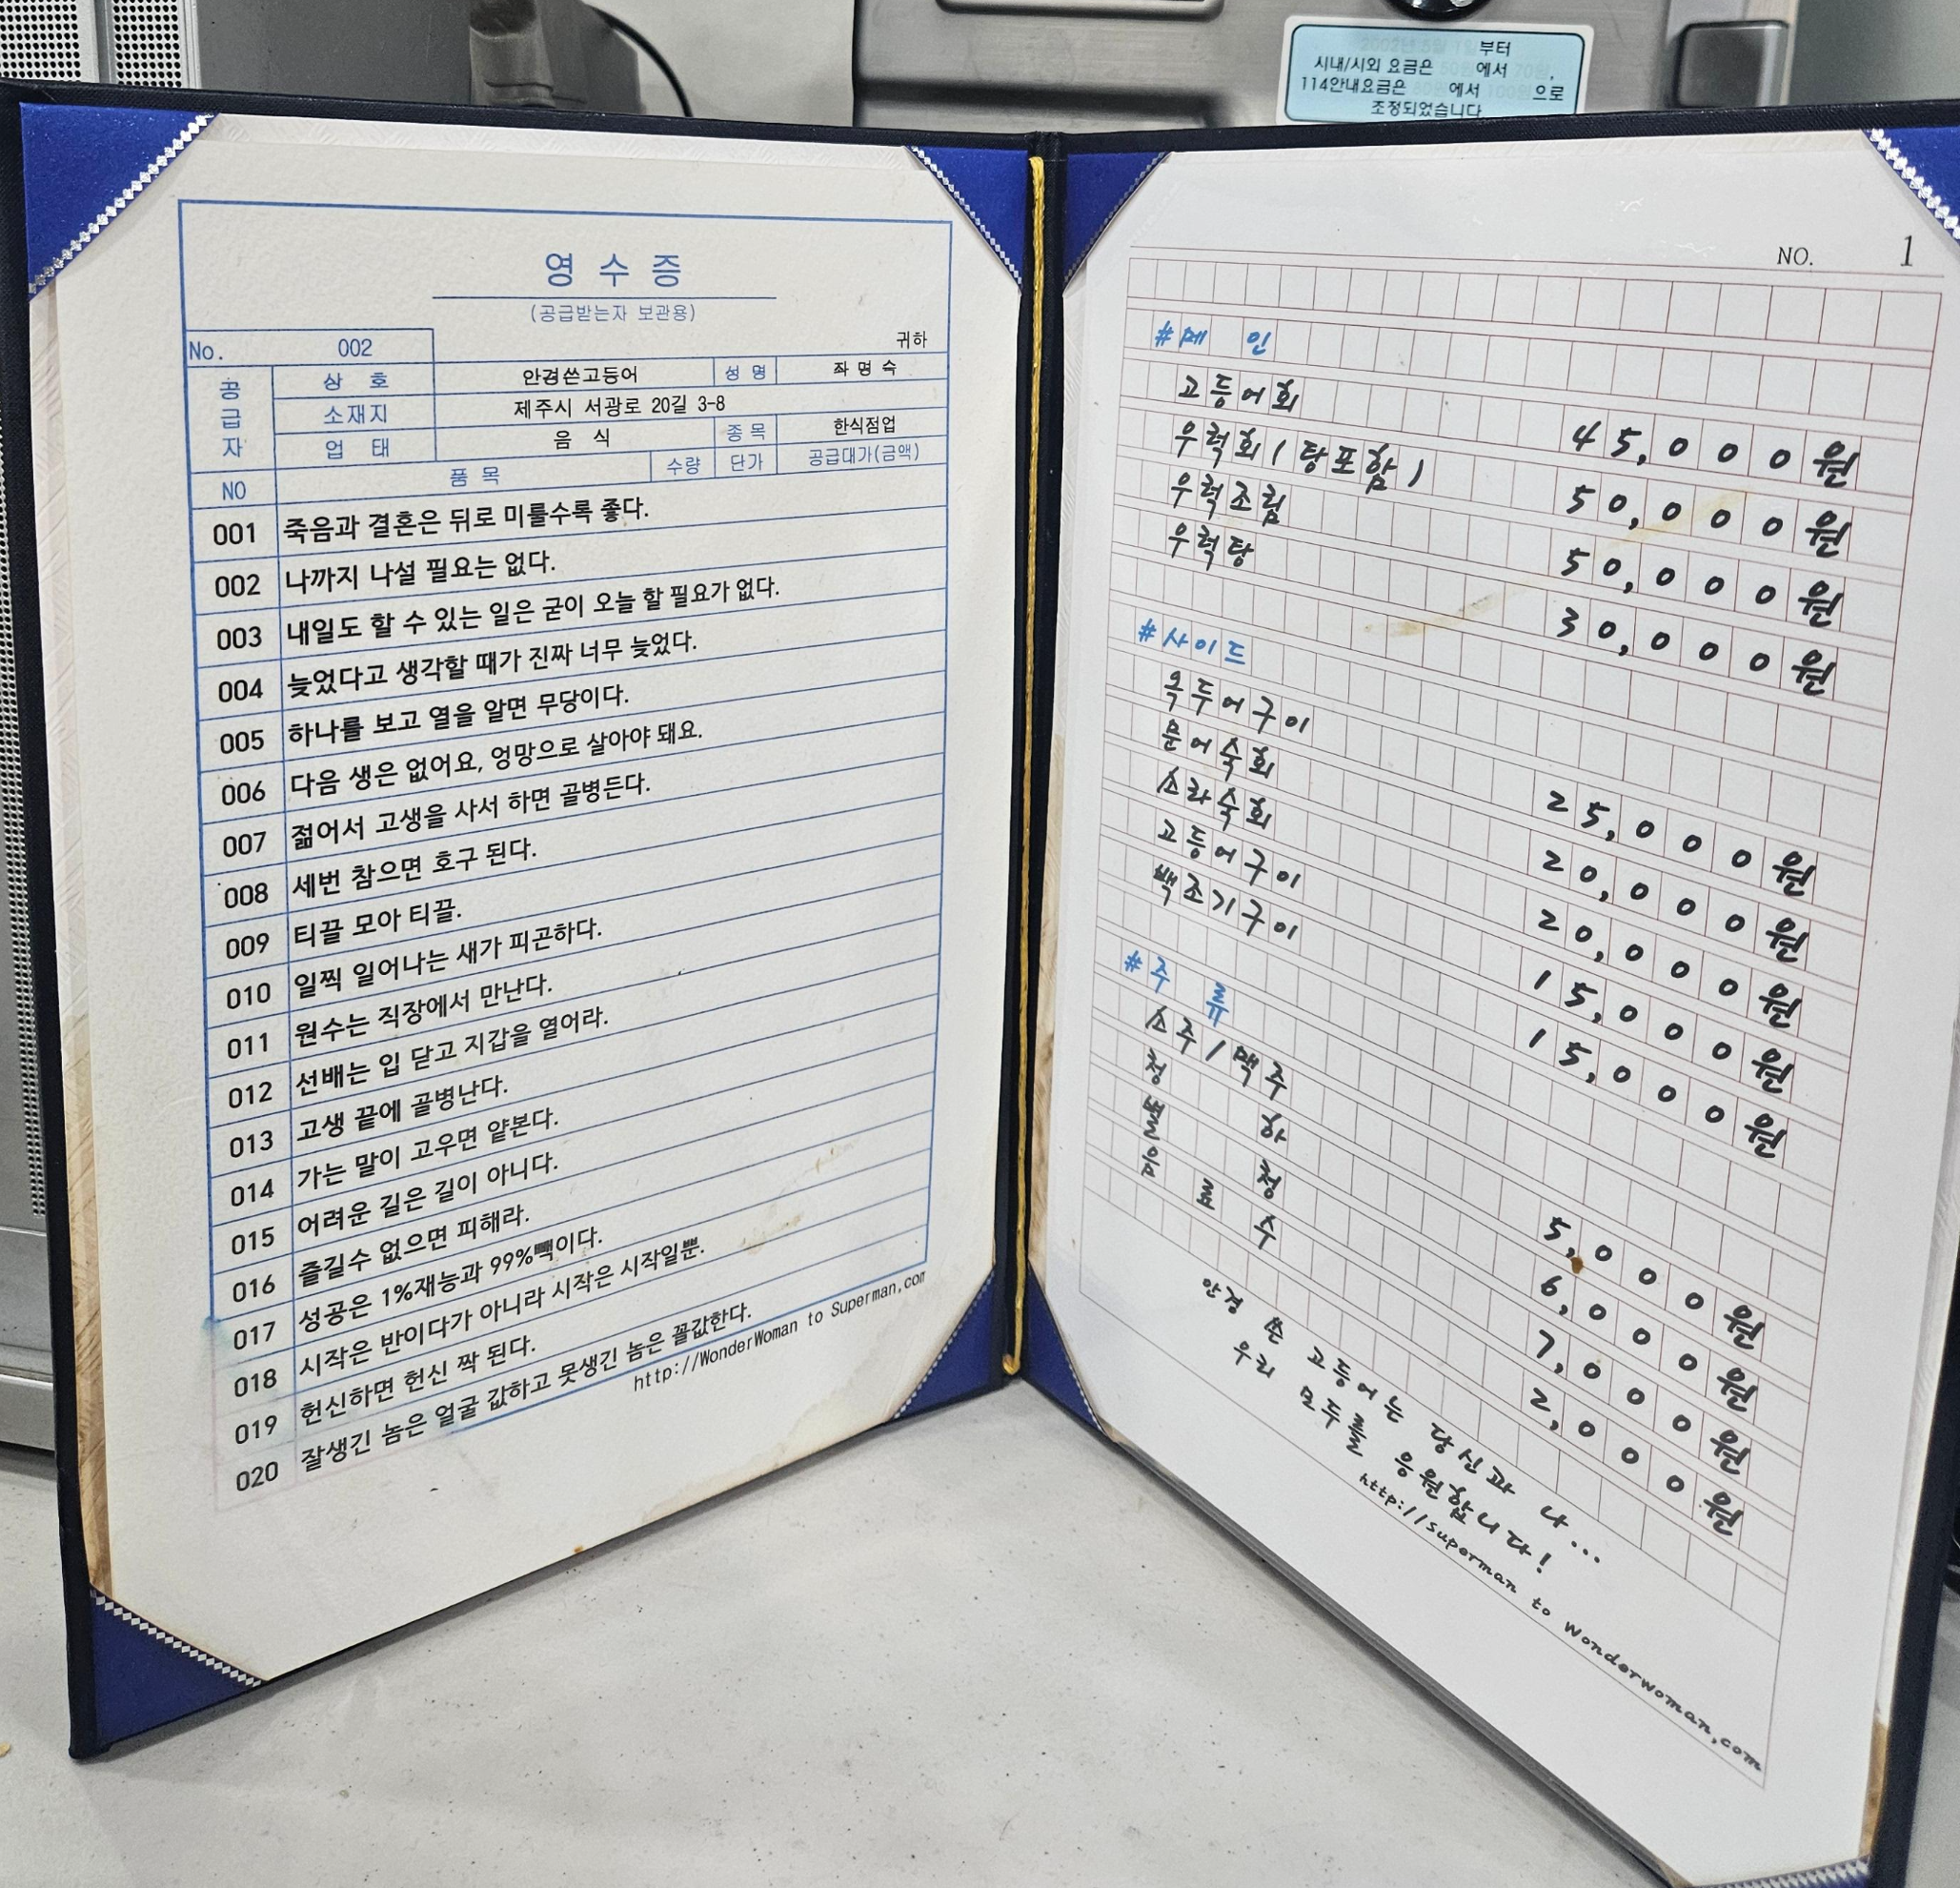 부터
시내/시외 요금은 에서 ,
114안내요금은 에서 으로
조정되었습니다
영 수 증
(공급받는자 보관용)
No. 002 귀하
공급자
상 호 안경쓴고등어 성 명 좌 명 숙
소재지 제주시 서광로 20길 3-8
업 태 음 식 종 목 한식점업
NO 품 목 수량 단가 공급대가(금액)
001 죽음과 결혼은 뒤로 미룰수록 좋다.
002 나까지 나설 필요는 없다.
003 내일도 할 수 있는 일은 굳이 오늘 할 필요가 없다.
004 늦었다고 생각할 때가 진짜 너무 늦었다.
005 하나를 보고 열을 알면 무당이다.
006 다음 생은 없어요, 엉망으로 살아야 돼요.
007 젊어서 고생을 사서 하면 골병든다.
008 세번 참으면 호구 된다.
009 티끌 모아 티끌.
010 일찍 일어나는 새가 피곤하다.
011 원수는 직장에서 만난다.
012 선배는 입 닫고 지갑을 열어라.
013 고생 끝에 골병난다.
014 가는 말이 고우면 얕본다.
015 어려운 길은 길이 아니다.
016 즐길수 없으면 피해라.
017 성공은 1%재능과 99%빽이다.
018 시작은 반이다가 아니라 시작은 시작일뿐.
019 헌신하면 헌신 짝 된다.
020 잘생긴 놈은 얼굴 값하고 못생긴 놈은 꼴값한다.
http://WonderWoman to Superman,com
NO. 1
#메 인
고등어회 45,000원
우럭회(탕포함) 50,000원
우럭조림 50,000원
우럭탕 30,000원
#사이드
옥두어구이 25,000원
문어숙회 20,000원
소라숙회 20,000원
고등어구이 15,000원
백조기구이 15,000원
#주 류
소주/맥주 5,000원
청 하 6,000원
별 청 7,000원
음 료 주 2,000원
안경 쓴 고등어는 당신과 나...
우리 모두를 응원합니다!
http://superman to wonderwoman,com